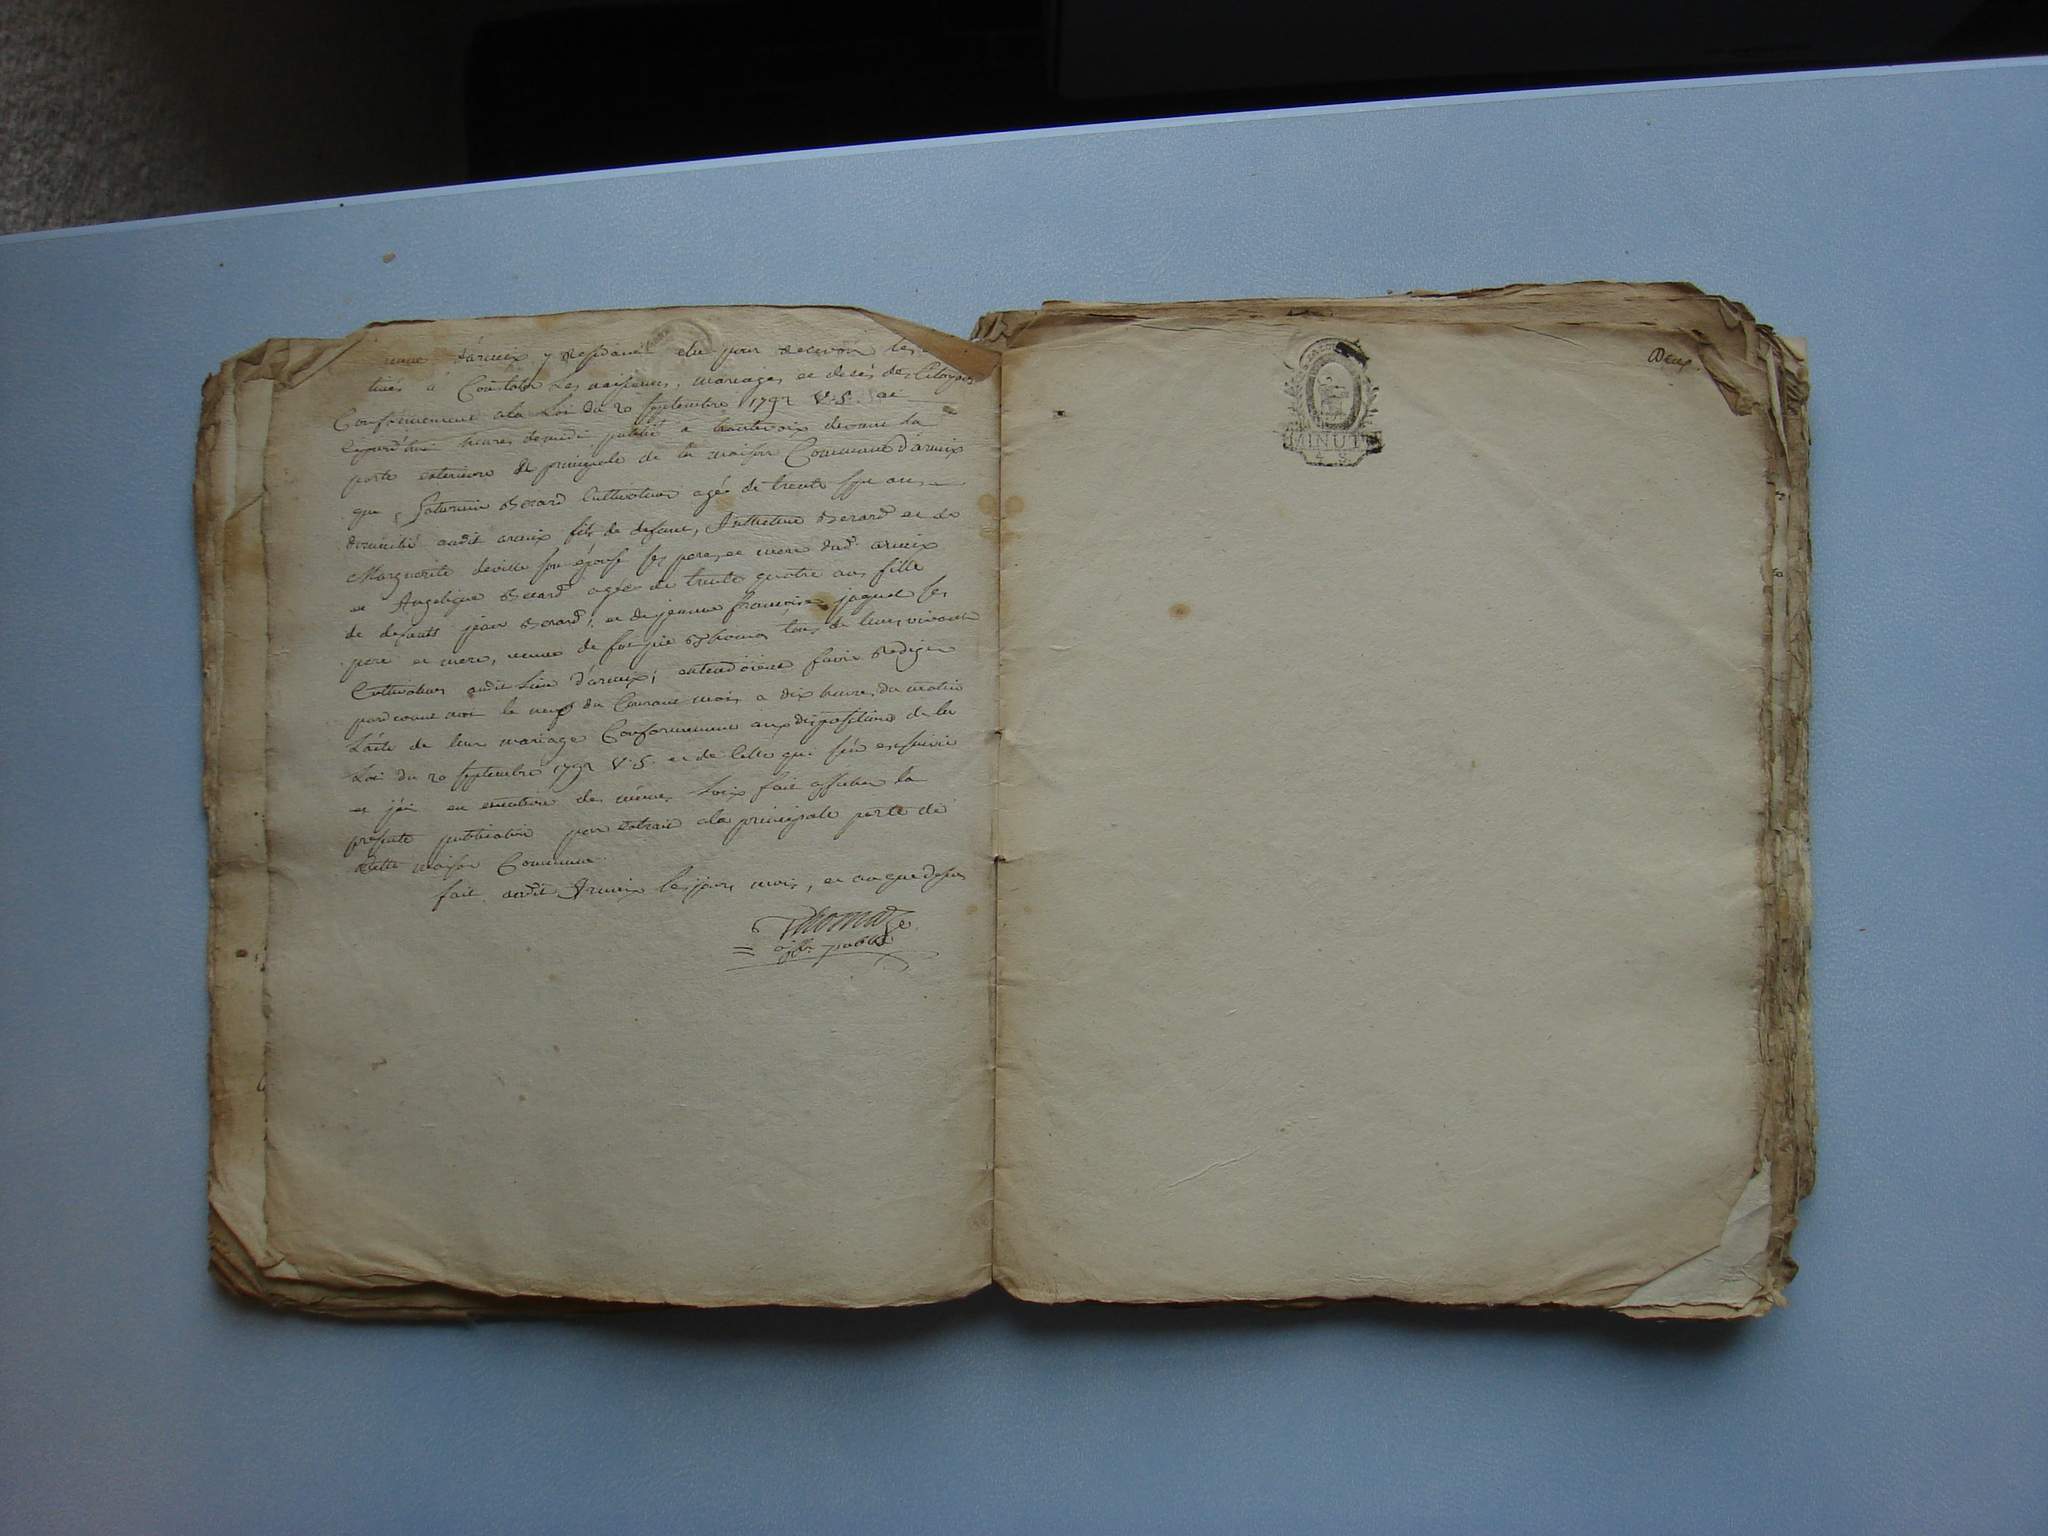 d'armix y Residant elu pour Recevoir les
tinés à Constater Les naissances, mariages et décès des Citoyens
Conformement a la Loi du 20 Septembre 1792 V.S. ai
heures publié a hautevoix devant la
porte exterieure & principale de la maison Commune d'armix
que, Saturnin Berard Cultivateur agés de trente sept ans
domicilié audit armix fils de defunt, Berard et de
Marguerite deville son épouse ses pere, et mere dud. armix
et Angelique Berard agée de trente quatre ans fille
de defunts jean Berard, et de françoise jaquet ses
pere et mere, veuve de Thomas tous de leurs vivants
Cultivateurs audit Lieu d'armix, entendoient faire Rediger
pardevant moi le neuf du Courant mois a dix heures du matin
L'acte de leur mariage Conformement aux dispositions de la
Loi du 20 Septembre 1792 V.S. et de celle qui s'en est suivie
et j'ai en execution des mêmes Loix fait afficher la
presente publication par extrait a la principale porte de
cette maison Commune.
fait audit Armix les jour, mois, et an que dessus
Thomaze
offr. public
Deux.
MINUTE
4 S